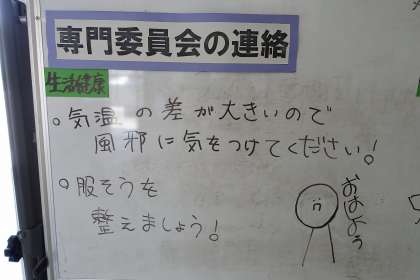 専門委員会の連絡
生活健康
。気温の差が大きいので
風邪に気をつけてください!
。服そうを
整えましょう!
おはよう